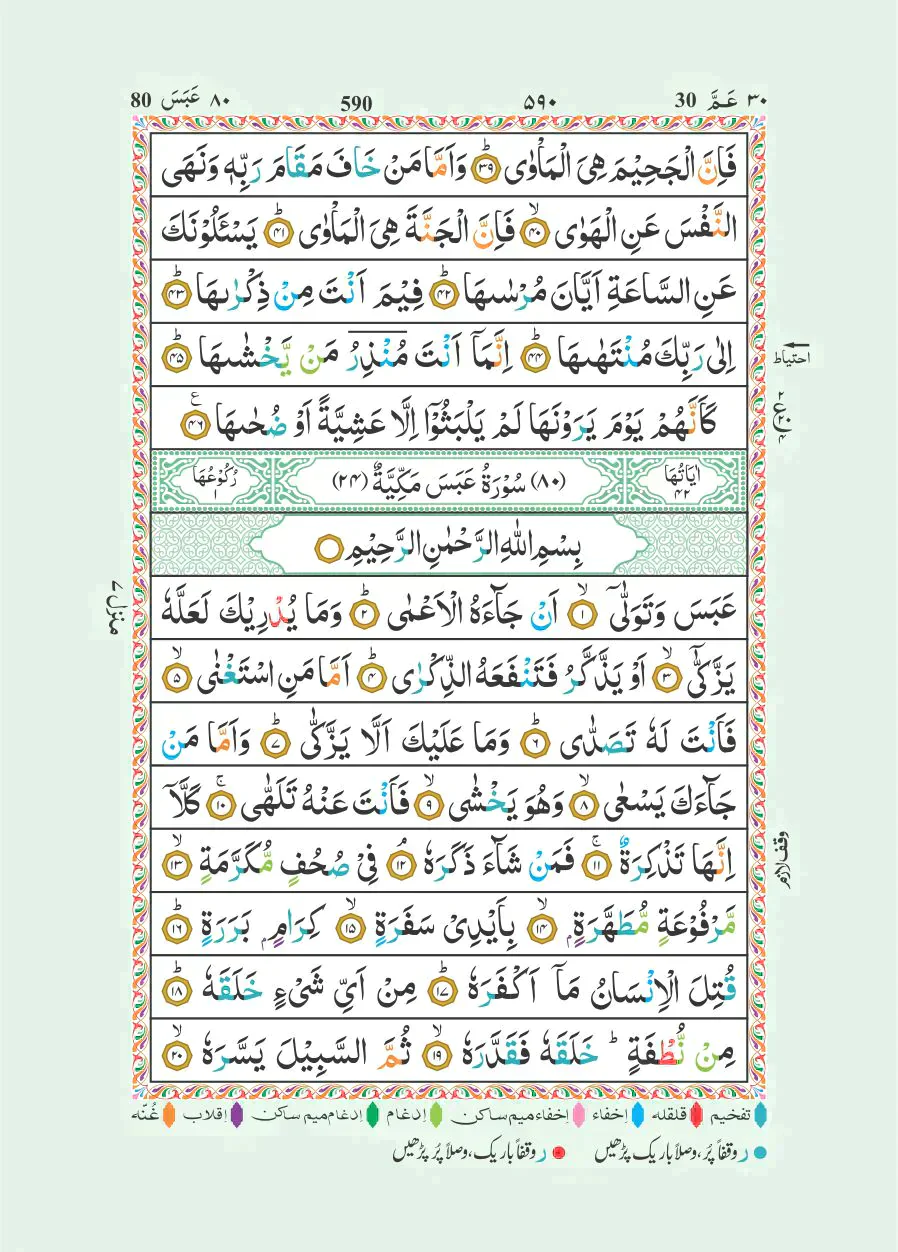 ٣٠ عَمَّ 30 ٥٩٠ 590 ٨٠ عَبَسَ 80
فَاِنَّ الْجَحِيْمَ هِيَ الْمَاْوٰى ؕ‏ ﴿۳۹﴾ وَاَمَّا مَنْ خَافَ مَقَامَ رَبِّهٖ وَنَهَى
النَّفْسَ عَنِ الْهَوٰى ۙ‏ ﴿۴۰﴾ فَاِنَّ الْجَنَّةَ هِيَ الْمَاْوٰى ؕ‏ ﴿۴۱﴾ يَسْـَٔلُوْنَكَ
عَنِ السَّاعَةِ اَيَّانَ مُرْسٰىهَا ؕ‏ ﴿۴۲﴾ فِيْمَ اَنْتَ مِنْ ذِكْرٰىهَا ؕ‏ ﴿۴۳﴾
اِلٰى رَبِّكَ مُنْتَهٰىهَا ؕ‏ ﴿۴۴﴾ اِنَّمَاۤ اَنْتَ مُنْذِرُ مَنْ يَّخْشٰىهَا ؕ‏ ﴿۴۵﴾
احتیاط
كَاَنَّهُمْ يَوْمَ يَرَوْنَهَا لَمْ يَلْبَثُوْۤا اِلَّا عَشِيَّةً اَوْ ضُحٰىهَا ﴿۴۶﴾ ع
ع ٢ ٢٠ ٤
اٰيَاتُهَا ٤٢ (٨٠) سُوْرَةُ عَبَسَ مَكِّيَّةٌ (٢٤) رُكُوْعُهَا ١
بِسْمِ اللّٰهِ الرَّحْمٰنِ الرَّحِيْمِ
عَبَسَ وَتَوَلّٰٓى ۙ‏ ﴿۱﴾ اَنْ جَآءَهُ الْاَعْمٰى ؕ‏ ﴿۲﴾ وَمَا يُدْرِيْكَ لَعَلَّهٗ
منزل ٧
يَزَّكّٰٓى ۙ‏ ﴿۳﴾ اَوْ يَذَّكَّرُ فَتَنْفَعَهُ الذِّكْرٰى ؕ‏ ﴿۴﴾ اَمَّا مَنِ اسْتَغْنٰى ۙ‏ ﴿۵﴾
فَاَنْتَ لَهٗ تَصَدّٰى ؕ‏ ﴿۶﴾ وَمَا عَلَيْكَ اَلَّا يَزَّكّٰى ؕ‏ ﴿۷﴾ وَاَمَّا مَنْ
جَآءَكَ يَسْعٰى ۙ‏ ﴿۸﴾ وَهُوَ يَخْشٰى ۙ‏ ﴿۹﴾ فَاَنْتَ عَنْهُ تَلَهّٰى ۚ‏ ﴿۱۰﴾ كَلَّاۤ
اِنَّهَا تَذْكِرَةٌ ۚ‏ ﴿۱۱﴾ فَمَنْ شَآءَ ذَكَرَهٗ ۘ‏ ﴿۱۲﴾ فِيْ صُحُفٍ مُّكَرَّمَةٍ ۙ‏ ﴿۱۳﴾
وقف لازم
مَّرْفُوْعَةٍ مُّطَهَّرَةٍ ۭ ۙ‏ ﴿۱۴﴾ بِاَيْدِيْ سَفَرَةٍ ۙ‏ ﴿۱۵﴾ كِرَامٍ ۭ بَرَرَةٍ ؕ‏ ﴿۱۶﴾
قُتِلَ الْاِنْسَانُ مَاۤ اَكْفَرَهٗ ؕ‏ ﴿۱۷﴾ مِنْ اَيِّ شَيْءٍ خَلَقَهٗ ؕ‏ ﴿۱۸﴾
مِنْ نُّطْفَةٍ ؕ خَلَقَهٗ فَقَدَّرَهٗ ۙ‏ ﴿۱۹﴾ ثُمَّ السَّبِيْلَ يَسَّرَهٗ ۙ‏ ﴿۲۰﴾
تفخیم قلقله اِخفاء اِخفاءمیم ساکن اِدغام اِدغام میم ساکن اِقلاب غُنّه
ر وقفاً پُر، وصلاً باریک پڑھیں ر وقفاً باریک، وصلاً پُر پڑھیں